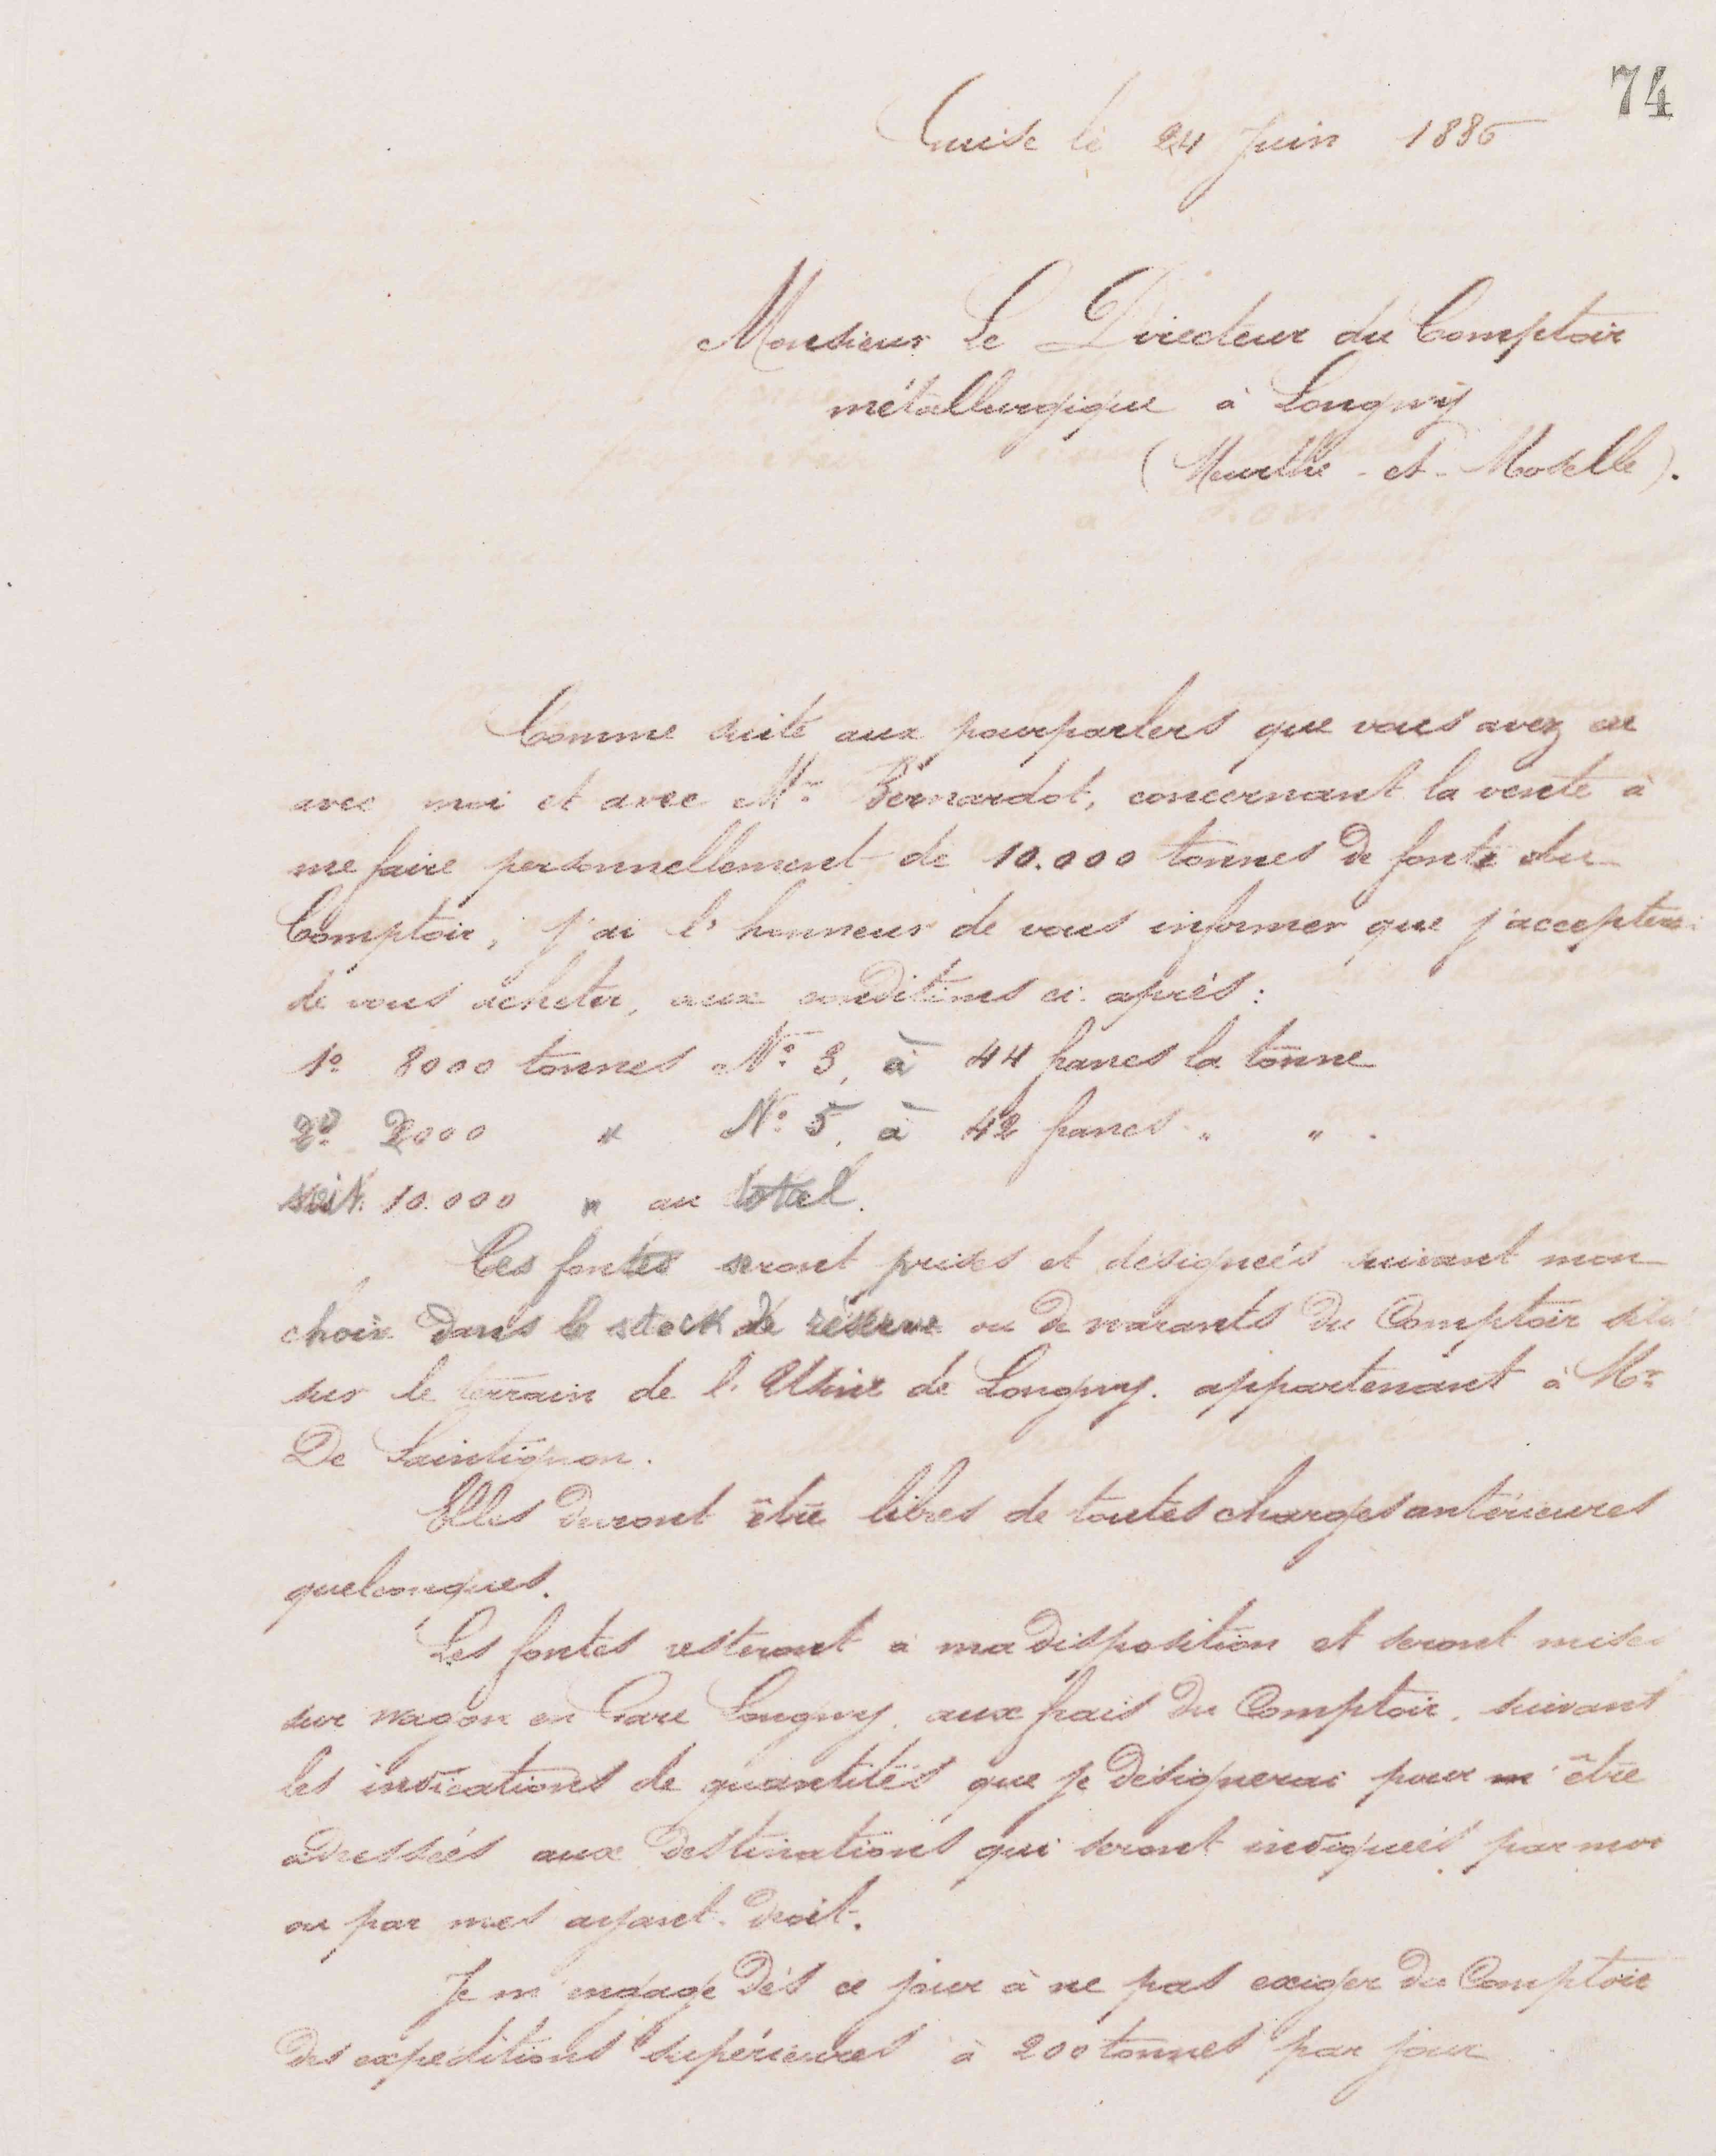 74
Guise le 24 Juin 1886
Monsieur Le Directeur du Comptoir
métallurgique à Longwy
(Meurthe-et-Moselle).
Comme suite aux pourparlers que vous avez eu
avec moi et avec Mr. Bernardot, concernant la vente à
me faire personnellement de 10.000 tonnes de fonte du
Comptoir, j'ai l'honneur de vous informer que j'accepterai
de vous acheter, aux conditions ci-après:
1o 8000 tonnes No. 3, à 44 francs la tonne
2o 2000 " No. 5, à 42 francs " " .
soit. 10.000 " au total.
Ces fontes seront prises et désignées suivant mon
choix dans le stock de réserve ou de warants du Comptoir situé
sur le terrain de l'Usine de Longwy. appartenant à Mr.
De Saintignon.
Elles devront être libres de toutes charges antérieures
quelconques.
Les fontes resteront à ma disposition et seront mises
sur wagon en Gare Longwy, aux frais du Comptoir, suivant
les indications de quantités que je désignerai pour m'être
adressées aux destinations qui seront indiquées par moi
ou par mes ayant-droit.
Je m'engage dès ce jour à ne pas exiger du Comptoir
des expéditions supérieures à 200 tonnes par jour